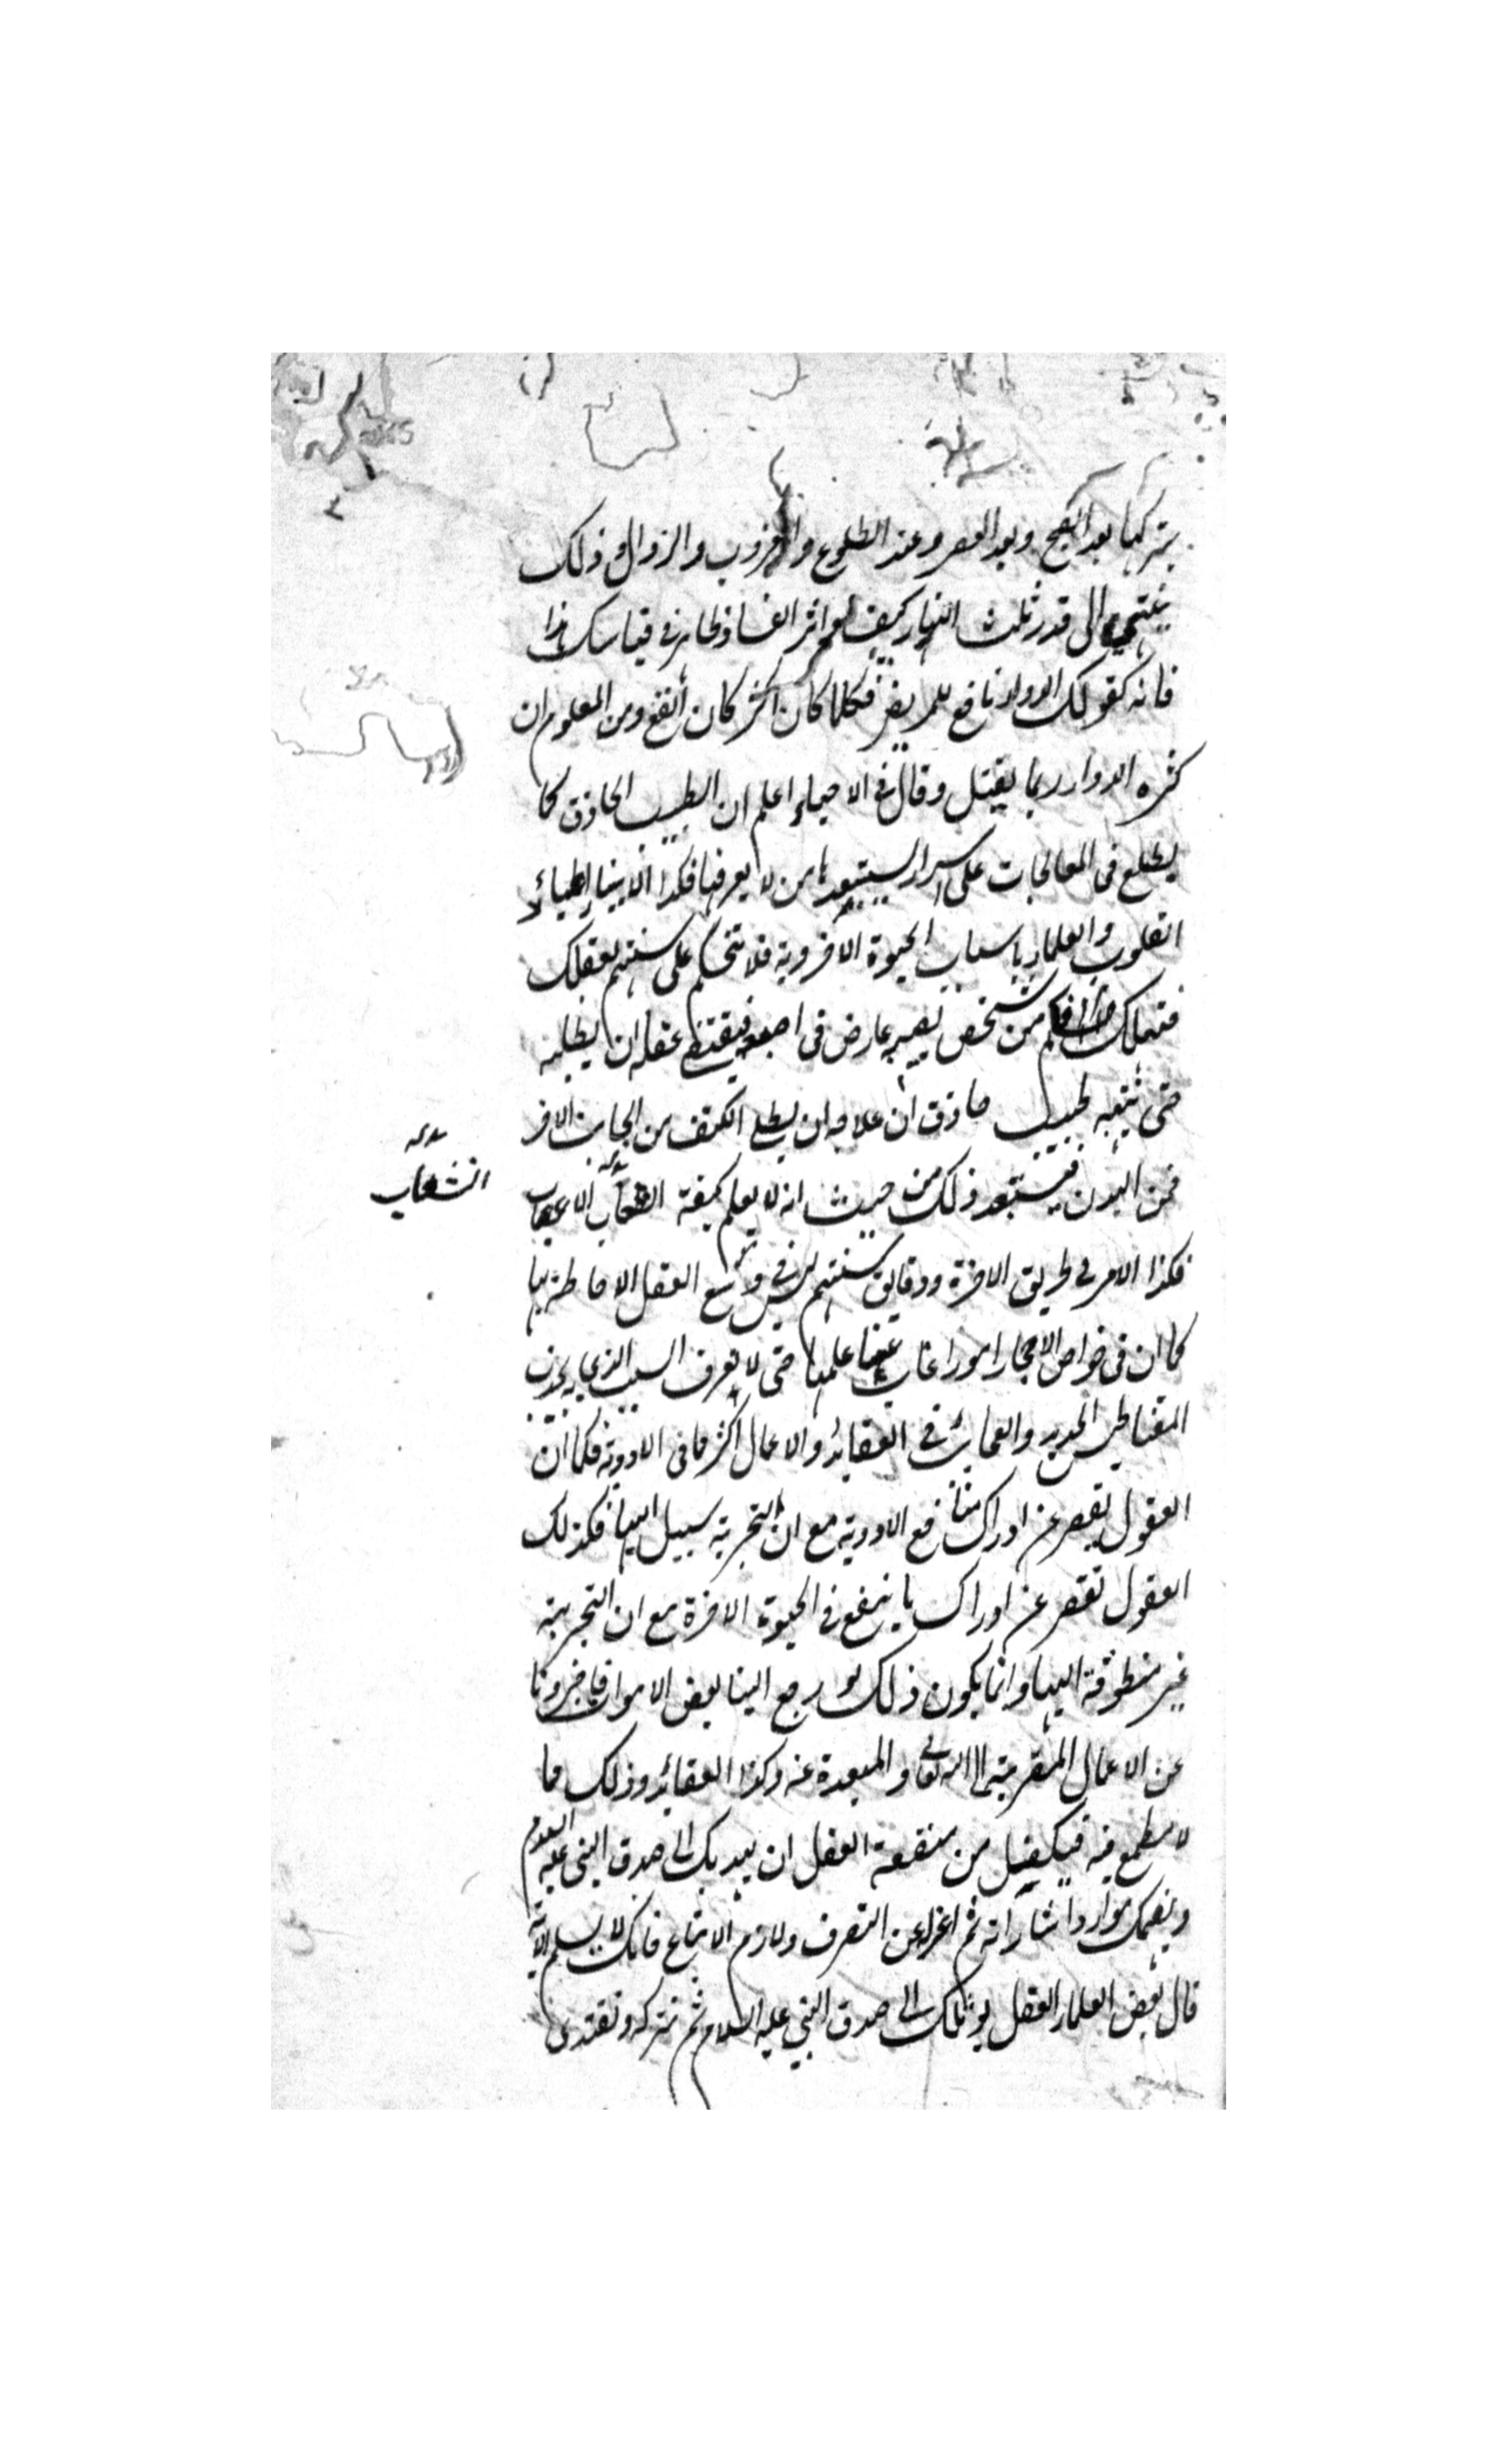 بتركها بعد الصبح وبعد العصر وعند الطلوع والغروب والزوال وذلك
ينتهي الى قدر ثلث النهار كيف لو اثر الفساد ظاهر في قياسك هذا
فانه كقولك الدواء نافع للمريض فكلما كان اكثر كان أنفع ومن المعلوم ان
كثره الدواء ربما يقتل وقال في الاحياء اعلم ان الطبيب الحاذق كما
يطلع في المعالجات على اسرار يستبعدها من لا يعرفها فكذا الانبياء اطباء
القلوب والعلماء باسباب الحيوة الاخروية فلا تتحكم على سنتهم بعقلك
فتهلك فكم من شخص يصيبه عارض في اصبعه فيقتضي عقله ان يطليه
حتى ينبهه طبيب حاذق ان علاجه ان يطلى الكتف من الجانب الاخر
من البدن فيستبعد ذلك من حيث انه لا يعلم كيفية انشعاب الاعصاب
انشعاب
فكذا الامر في طريق الاخرة ودقائق سنتهم ليس في وسع العقل الاحاطة بها
كما ان في خواص الاحجار امورا غاب عنا علمها حتى لا يعرف السبب الذي به يجذب
المقناطيس الحديد والعجائب في العقائد والاعمال اكثر مما في الادوية فكما ان
العقول يقصر عن ادراك منافع الادوية مع ان التجربة سبيل اليها فكذلك
العقول تقصر عن ادراك ما ينفع في الحيوة الاخرة مع ان التجربة
غير متطرقة اليها وانما يكون ذلك لو رجع الينا بعض الاموات فاخبرونا
عن الاعمال المقربة الى الله تعالى والمبعدة عنه وكذا العقائد وذلك مما
لا مطمع فيه فيكفيك من منفعة العقل ان يهديك الى صدق النبي عليه السلام
ويفهمك موارد اشاراته ثم اعزله عن التصرف ولازم الاتباع فانك لا تسلم الا به
قال بعض العلماء العقل يوصلك الى صدق النبي عليه السلام ثم تتركه وتقتدى